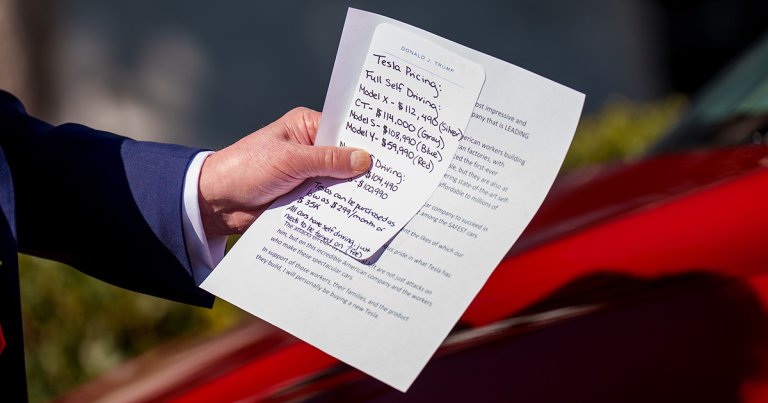 DONALD J. TRUMP
Tesla Pricing:
Full Self Driving:
Model X - $112,490 (Silver)
CT - $114,000 (Gray)
Model S - $108,990 (Blue)
Model Y - $59,990 (Red)
Driving:
$104,490
$100,990
can be purchased as
low as $299/month or
$35K
All cars have self driving, just
needs to be turned on (Fee)
most impressive and
company that is LEADING
American workers building
an factories, with
the first-ever
but they are also at
ering state-of-the-art self-
affordable to millions of
company to succeed in
among the SAFEST cars
the likes of which our
pride in what Tesla has
The attacks are not just attacks on
him, but on this incredible American company and the workers
who make these spectacular cars.
In support of those workers, their families, and the product
they build, I will personally be buying a new Tesla.